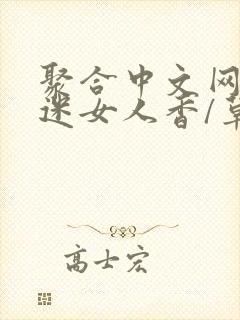 聚合中文网
迷女人香/草
高士宏